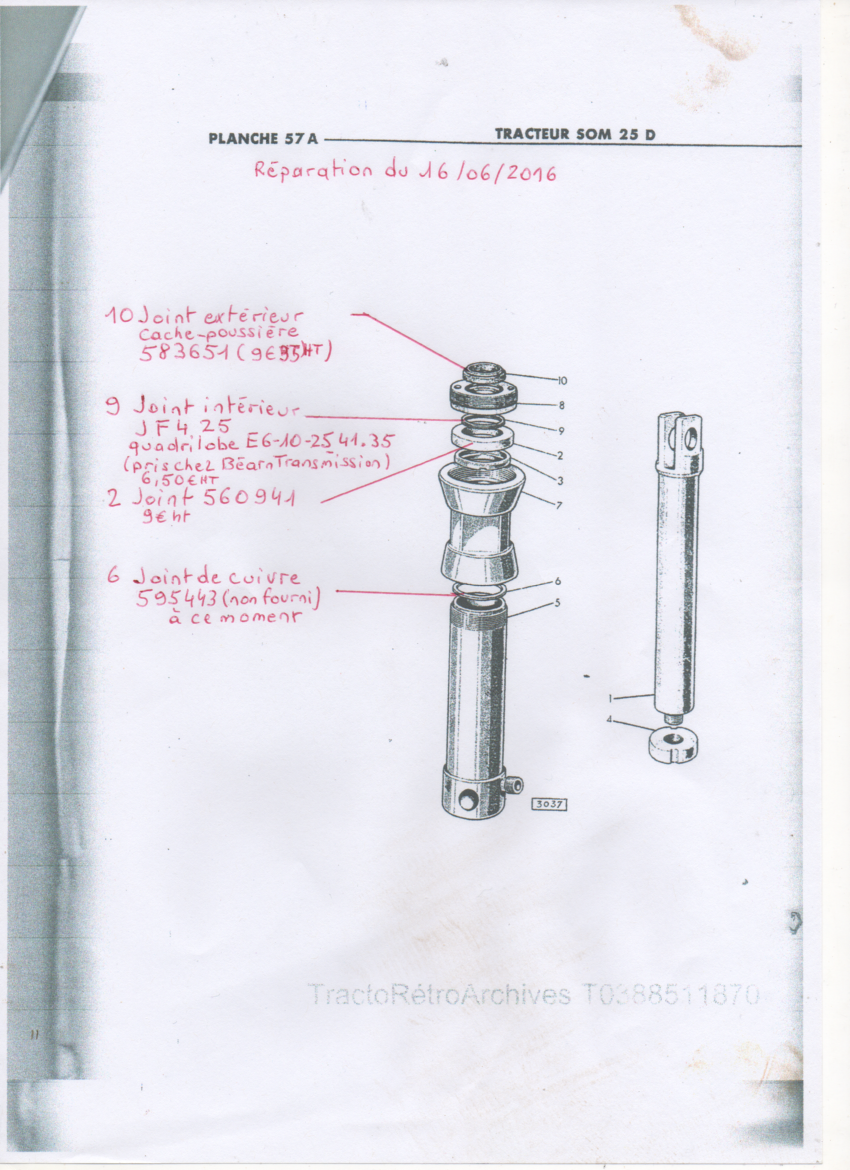 PLANCHE 57 A
TRACTEUR SOM 25 D
Réparation du 16/06/2016
10 Joint extérieur
cache-poussière
583651 (9€ HT)
9 Joint intérieur
JF4 25
quadrilobe E6-10-2541.35
(pris chez Béarn Transmission)
6,50€ HT
2 Joint 560941
9€ ht
6 Joint de cuivre
595443 (non fourni)
à ce moment
10
8
9
2
3
7
6
5
1
4
3037
TractoRétroArchives T0388511870
11